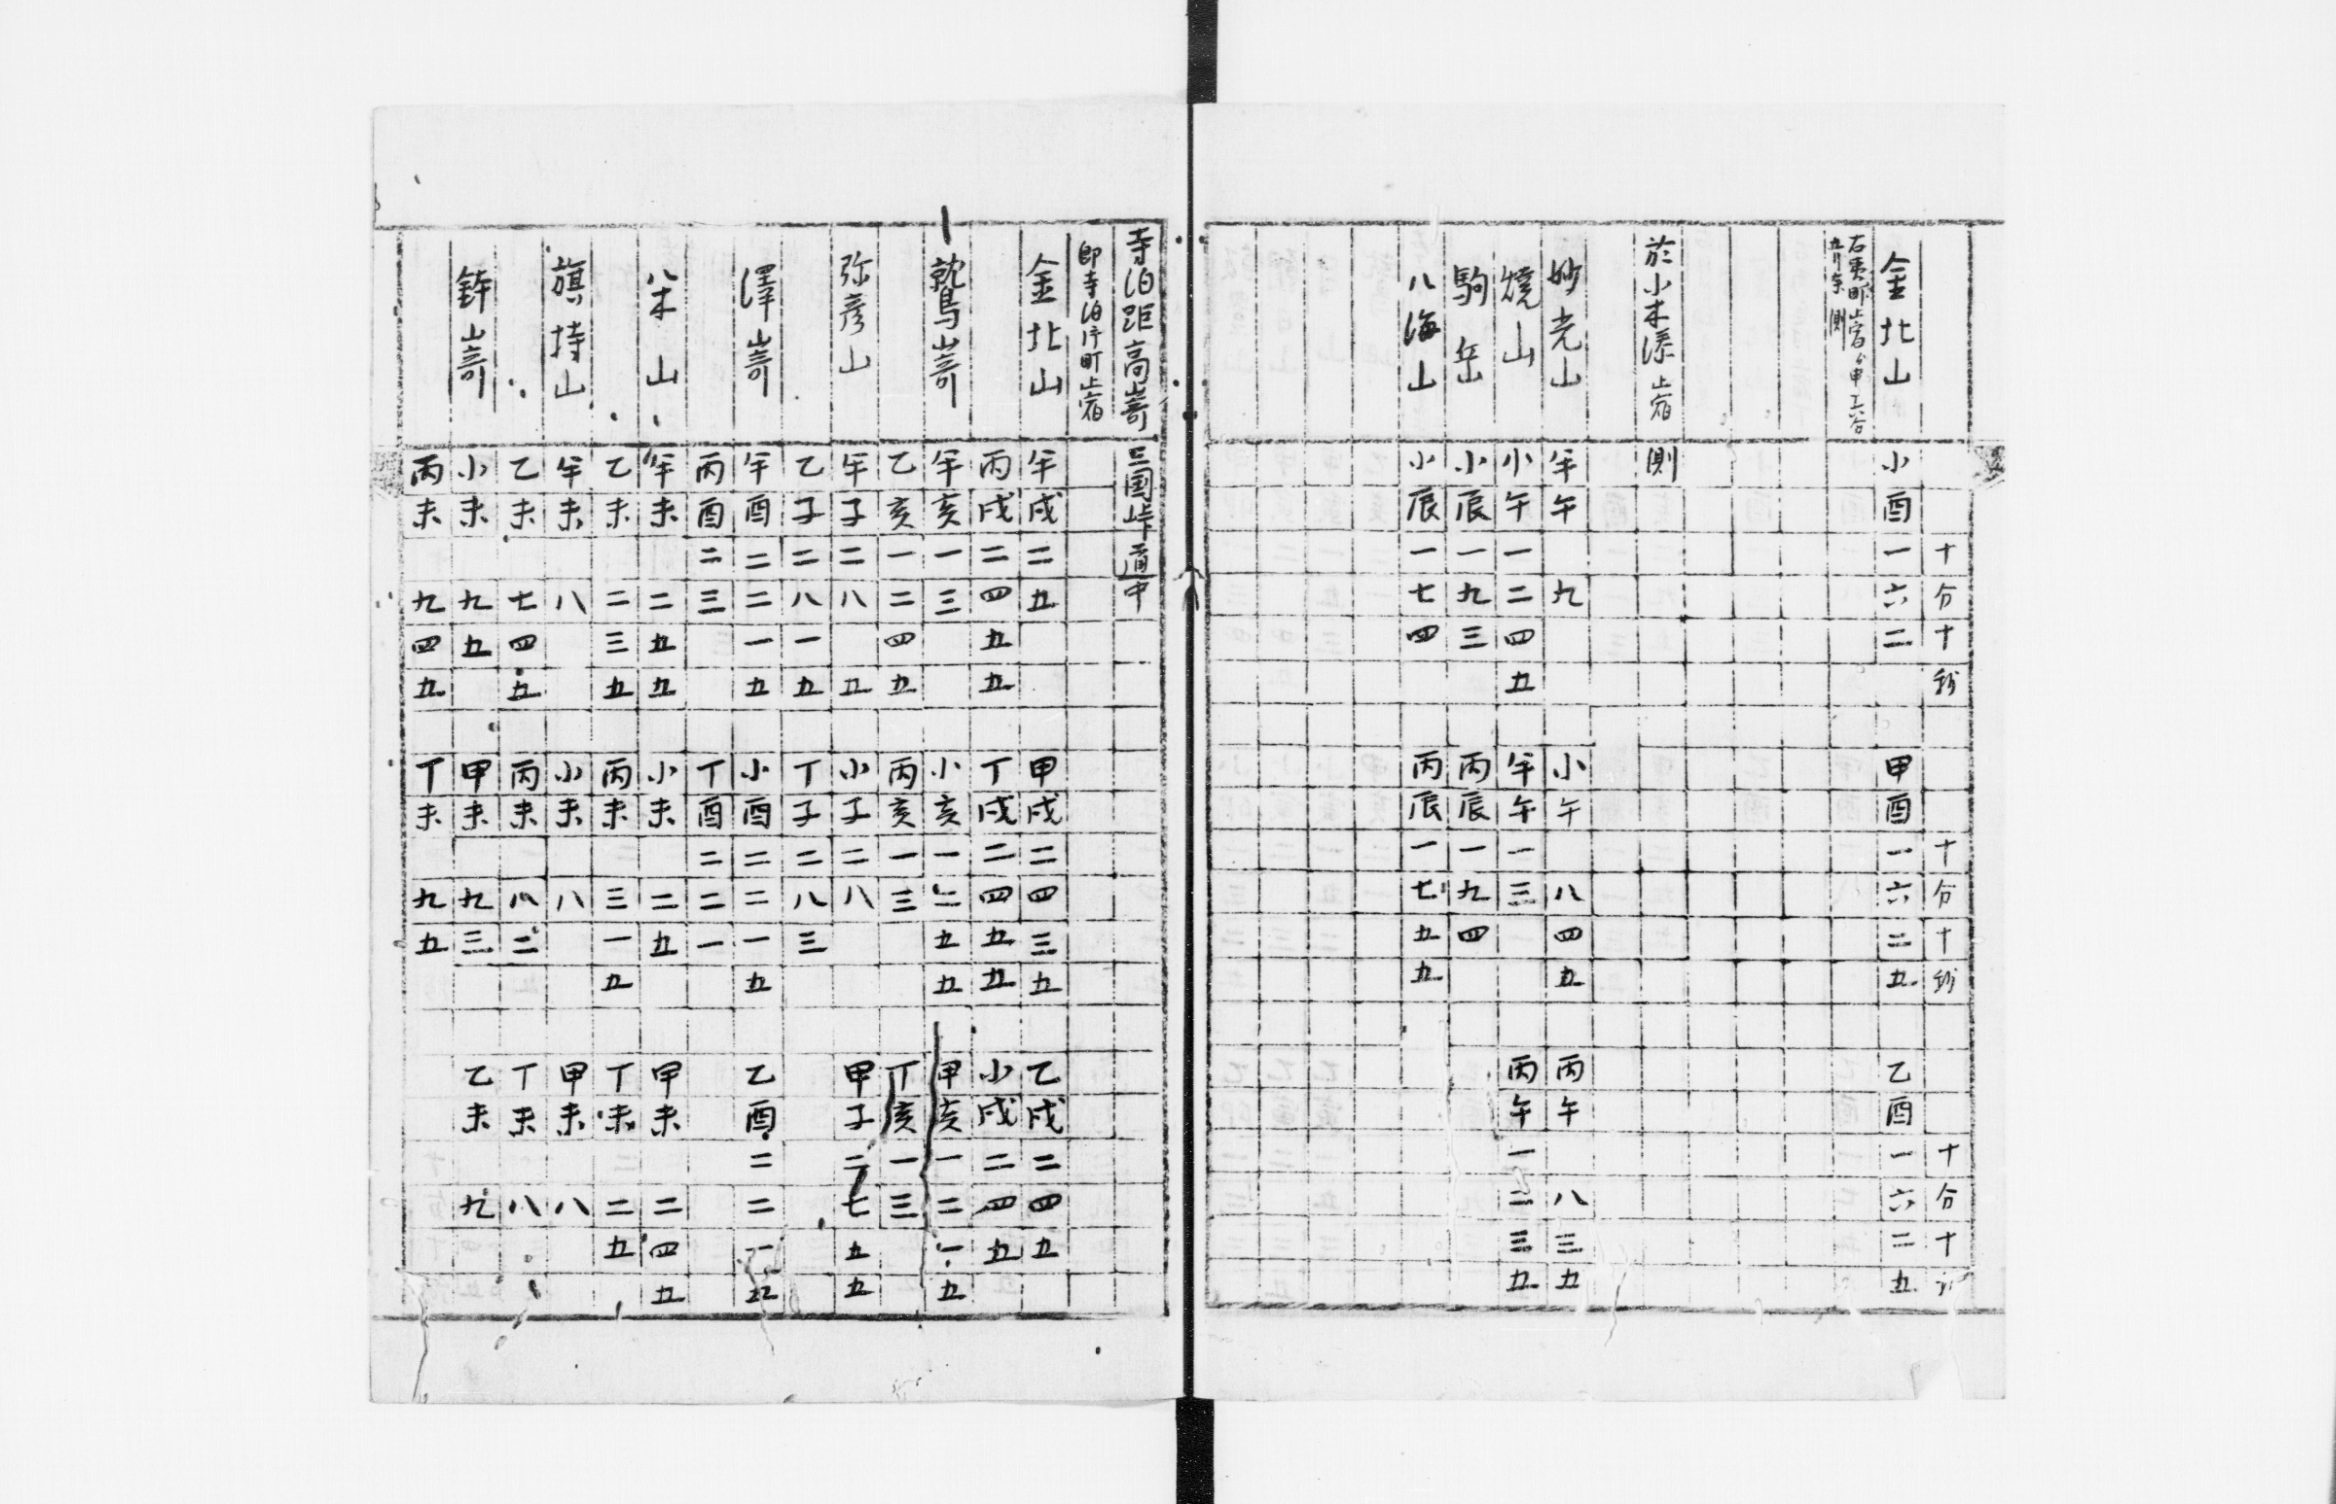 十分十秒 十分十秒 十分十
金北山 小酉一六二 甲酉一六二五 乙酉一六二五
右夷町止宿 甲工合
測
於小木湊止宿 測
妙光山 半午九 小午八四五 丙午八三五
焼山 小午一二四五 半午一三 丙午一二三五
駒岳 小辰一九三 丙辰一九四
八海山 小辰一七四 丙辰一七五五
寺泊距高嵜 三国峠道中
即寺泊片町止宿
金北山 半戌二五 甲戌二四三五 乙戌二四五
丙戌二四五五 丁戌二四五五 小戌二四五
鷲嵜 半亥一三 小亥一二五五 甲亥一二一五
乙亥一二四五 丙亥一三 丁亥一三
弥彦山 半子二八五 小子二八 甲子二七五五
乙子二八一五 丁子二八三
澤嵜 半酉二二一五 小酉二二一五 乙酉二二一五
丙酉二三 丁酉二二一
米山 半未二五五 小未二五 甲未二四五
乙未二三五 丙未三一五 丁未二五
旗持山 半未八 小未八 甲未八
乙未七四五 丙未八二 丁未八
鉢嵜 小未九五 甲未九三 乙未九
丙未九四五 丁未九五